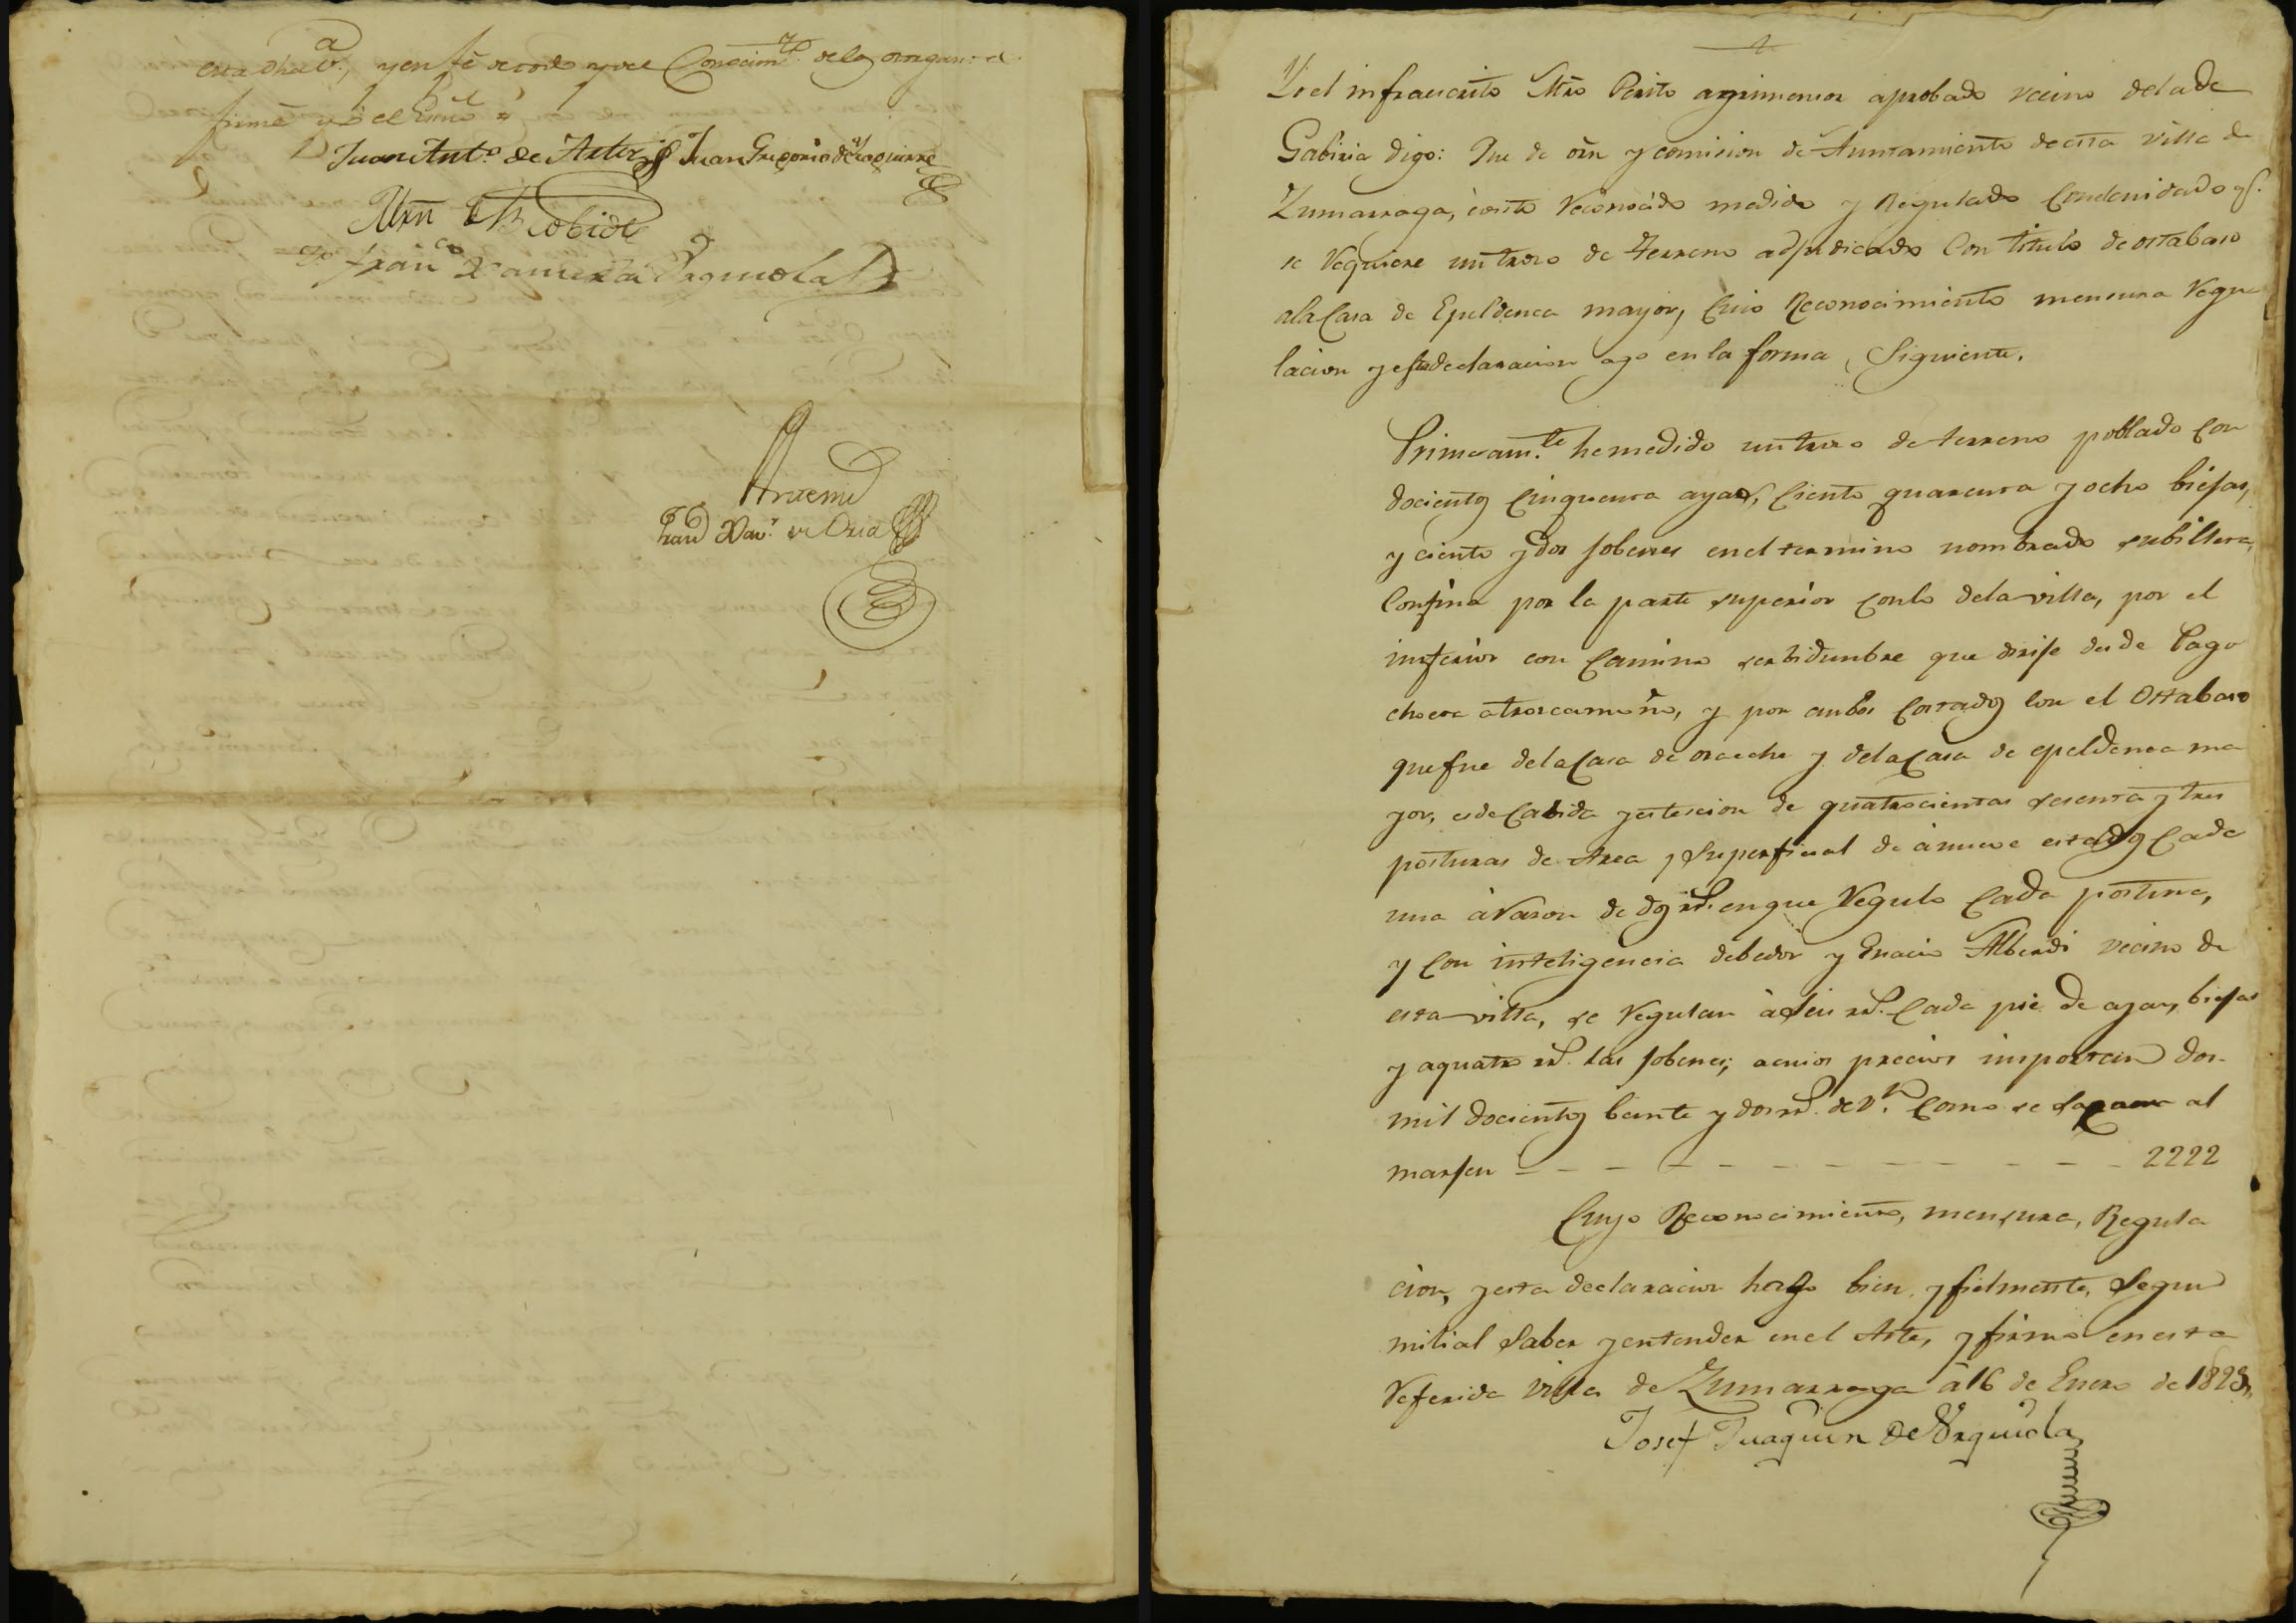 esta dha V.a, y en fé de todo y del Conocim.to de los otorgan.s
firmé yo el Esno
Juan Ant.o de Juan Gregorio de Yzaguirre
Mrn
Fran.co Xavier de
Antemi
Xav.r de Oria
Yo el infraescrito Mro Perito agrimensor aprobado vecino de la de
Gabiria digo: Que de orn y comision de Auntamiento de esta villa de
Zumarraga, Reconocido medido y Regulado
se Requiere un troso de terreno adjudicado Con titulo de ostabaso
ala Casa de Epeldenea mayor, Cuio Reconocimiento mensura Regu
lacion y esta declaracion ago en la forma Siguiente.
Primeram.te he medido un troso de terreno poblado Con
docientos Cinquenta ayas, Ciento quarenta y ocho biejas,
y ciento y dos jobenes en el termino nombrado
Confina por la parte superior con lo dela villa, por el
inferior con Camino serbidunbre que dirije desde Pago
choeta y por anbos Costados con el Ostabaso
que fue dela Casa de y dela Casa de epeldenea ma
yor, es de Cabida y estencion de quatrocientas sesenta y tres
posturas de Area y Superficial de à nuebe estados Cada
una à Rason de dos rs. en que Regulo Cada postura,
y Con inteligencia y Enacio Alberdi vecino de
esta villa, se Regulan à seis rs. Cada pie de ayas, biejas
y a quatro rs. las jobenes; a cuios precios importan dos
mil docientos beinte y dos rs. de V.n Como se saca al
marjen - - - - - - - - - - - - 2222
Cuyo Reconocimiento, mensura, Regula
cion, y esta declaracion hago bien y fielmente, Segun
mi lial Saber y entender en el Arte, y firmo en esta
Referida villa de Zumarraga à 16 de Enero de 1823,,
Josef Juaquin de Urquiola